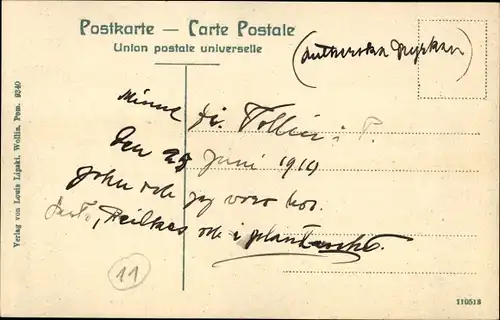 Postkarte — Carte Postale
Union postale universelle
(Lutherska Kyrkan)
Minne fr. Tollin i P.
Den 25 Juni 1919
John och jag voro hos
Reilkas och i
11
Verlag von Louis Lipski, Wollin, Pom. 9240
110518